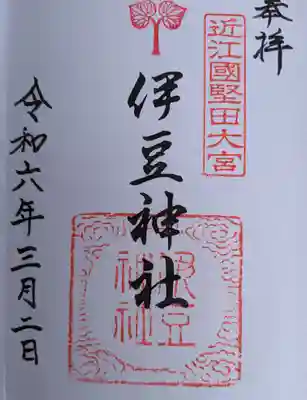 奉拝
近江國堅田大宮
伊豆神社
伊豆
神社
令和六年三月二日